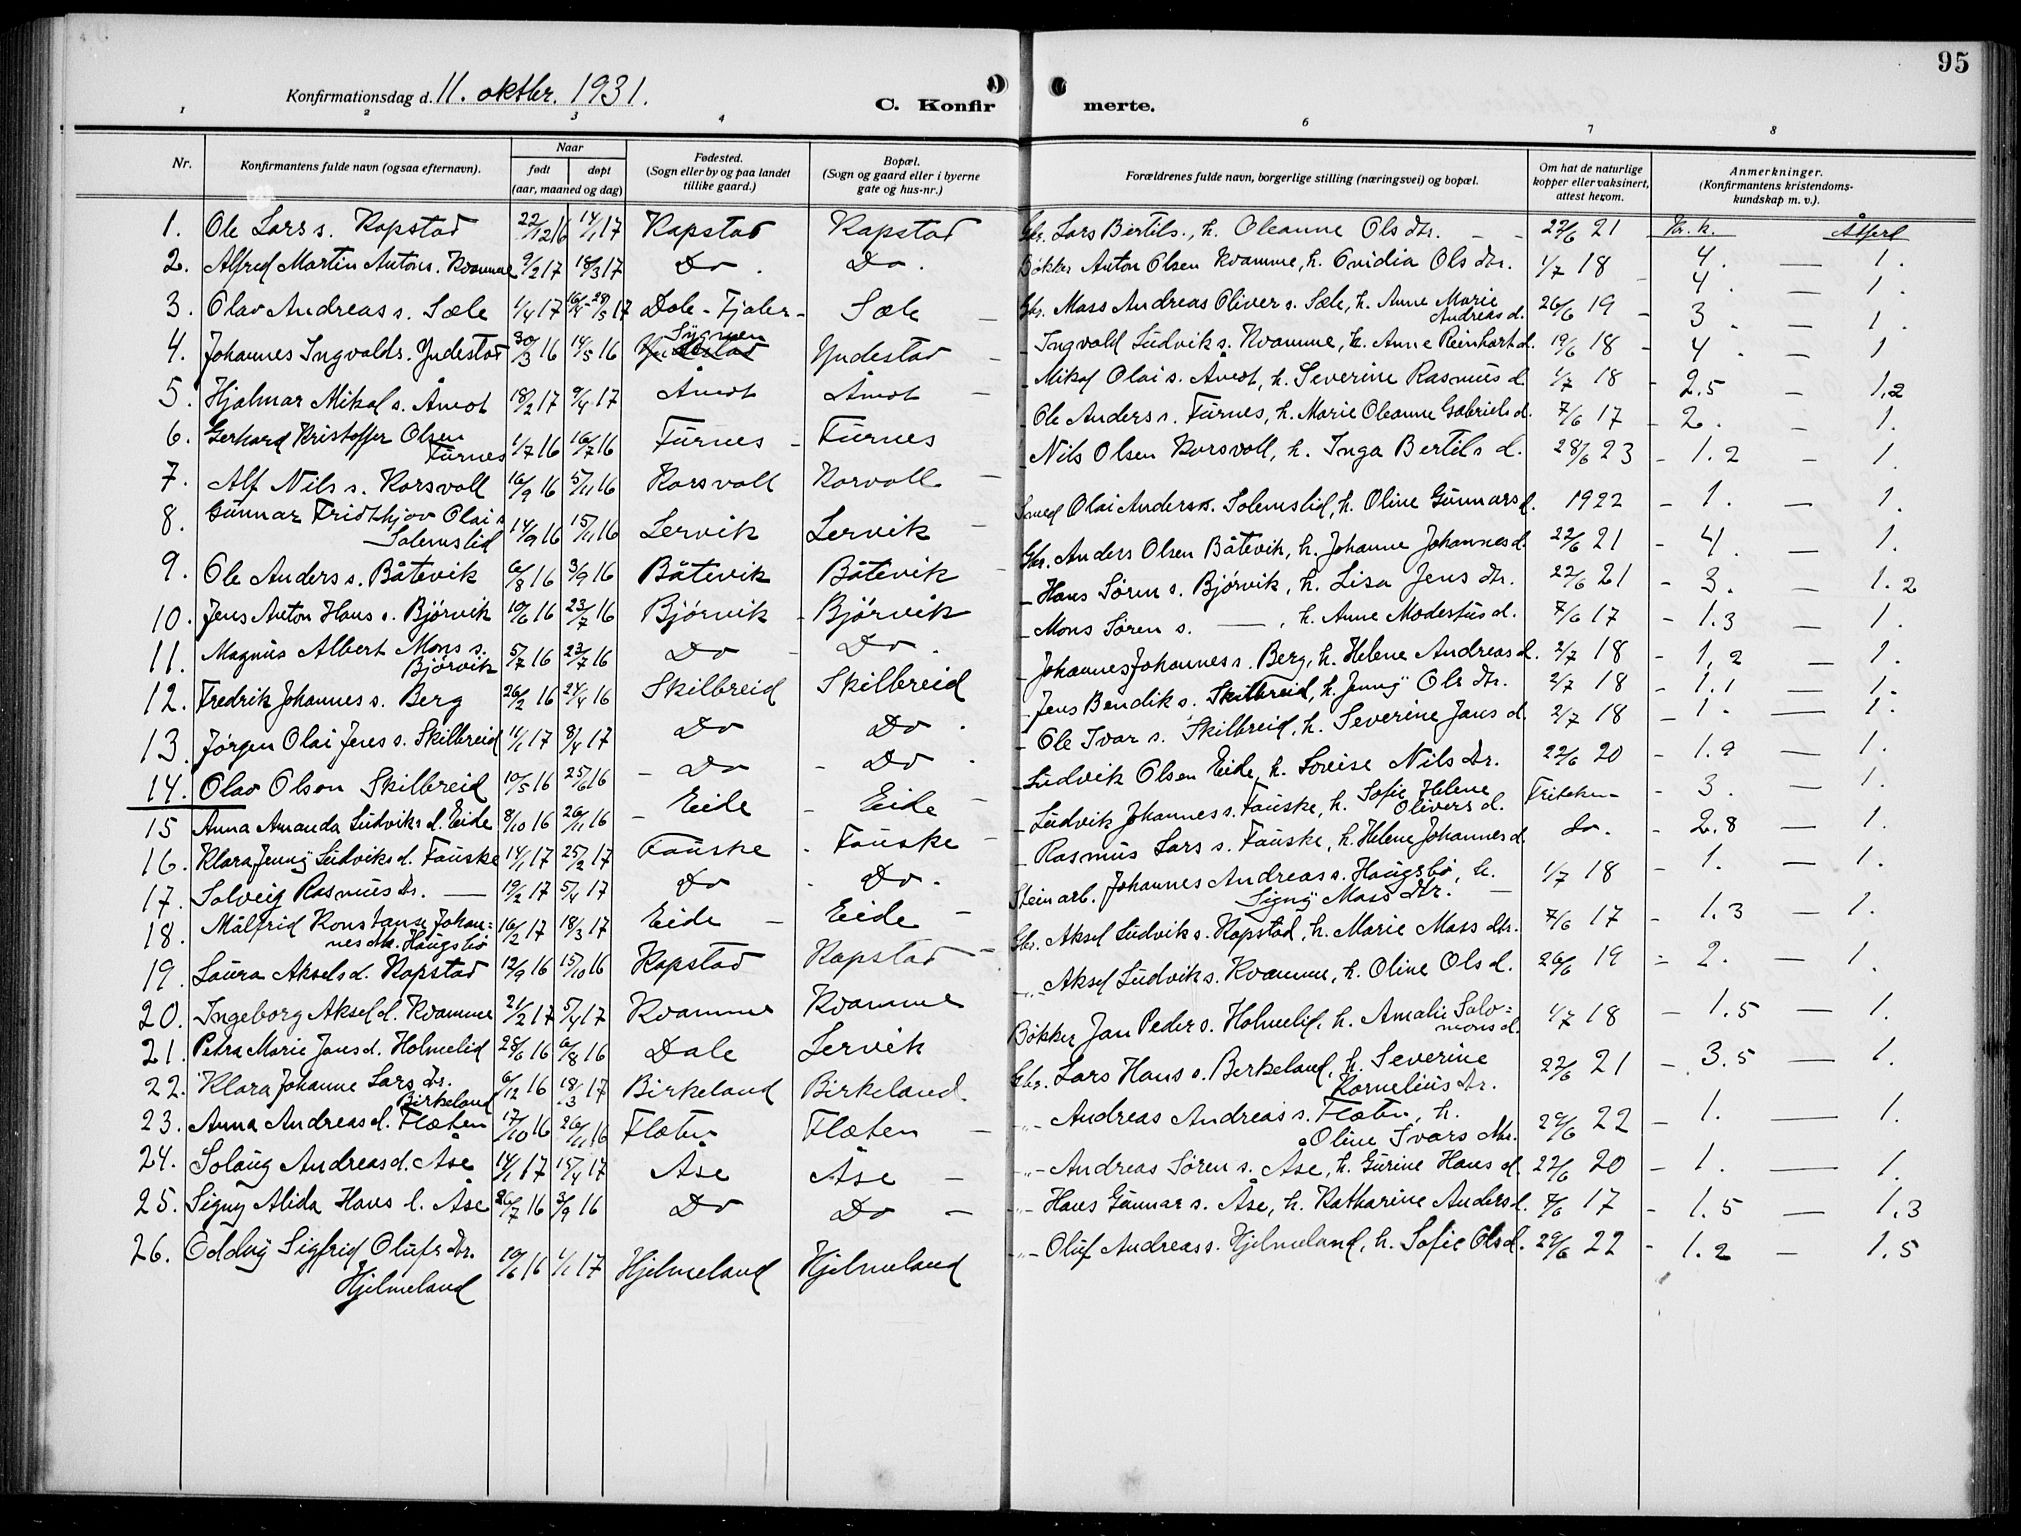 95
Konfirmationsdag d. 11. oktbr. 1931.
C. Konfir
merte.
1 2 3 4 6 7 8
Nr.
Konfirmantens fulde navn (ogsaa efternavn).
Naar
født døpt
(aar, maaned og dag)
Fødested.
(Sogn eller by og paa landet
tillike gaard.)
Bopæl.
(Sogn og gaard eller i byerne
gate og hus-nr.)
Forældrenes fulde navn, borgerlige stilling (næringsvei) og bopæl.
Om hat de naturlige
kopper eller vaksinert,
attest herom.
Anmerkninger.
(Konfirmantens kristendoms-
kundskap m. v.).
Kr. k. Åtferd
1. Ole Lars s. Rapstad 22/12 16 14/1 17 Rapstad Rapstad Gbr. Lars Bertils., h. Oleanne Ols dtr. 22/6 21 4. — 1.
2. Alfred Martin Antons. Kvamme 9/2 17 18/3 17 Do. Do. Bøkker Anton Olsen Kvamme, h. Ovidia Ols dtr. 1/7 18 4. — 1.
3. Olav Andreas s. Sæle 1/4 17 16/4 - 29/5 17 Dale - Fjaler - Sæle Gbr. Mass Andreas Oliver s. Sæle, h. Anne Marie
Andreas d. 26/6 19 3. — 1.
4. Johannes Ingvalds. Yndestad 30/3 16 14/5 16 Yndestad Yndestad - Ingvald Ludvik s. Kvamme, h. Anne Reinhart d. 19/6 18 4. — 1
5. Hjalmar Mikal s. Åmot 18/2 17 9/4 17 Åmot Åmot - Mikal Olai s. Åmot, h. Severine Rasmus d. 1/7 18 2.5 - 1,2
6. Gerhard Kristoffer Olsen
Furnes 1/7 16 16/7 16 Furnes - Furnes - Ole Anders s. Furnes, h. Marie Oleanne Gabriels d. 7/6 17 - 2. - 1.
7. Alf Nils s. Korsvoll 16/9 16 5/11 16 Korsvoll Korvoll - Nils Olsen Korsvoll, h. Inga Bertils d. 28/6 23 - 1.2 - 1.
8. Gunnar Fridthjov Olai s
Solemslid 14/9 16 15/11 16 Lervik Lervik Smed Olai Anders s. Solemslid, h. Oline Gunnars d. 1922 - 1. — 1.
9. Ole Anders s. Båtevik 6/8 16 3/9 16 Båtevik Båtevik Gbr. Anders Olsen Båtevik, h. Johanne Johannes d. 22/6 21 - 4. — 1.
10. Jens Anton Hans s. Bjørvik 10/6 16 23/7 16 Bjørvik - Bjørvik - Hans Søren s. Bjørvik, h. Lisa Jens dtr. 22/6 21 - 3. 1.2
11. Magnus Albert Mons s.
Bjørvik 5/7 16 23/7 16 Do - Do. - Mons Søren s. — , h. Anne Modestus d. 7/6 17 - 1.3 — 1.
12. Fredrik Johannes s. Berg 26/2 16 24/4 16 Skilbreid Skilbreid - Johannes Johannes s. Berg, h. Helene Andreas d. 2/7 18 - 1,2 — 1.
13. Jørgen Olai Jens s. Skilbreid 11/1 17 8/4 17 Do Do. - Jens Bendik s. Skilbreid, h. Jenny Ols dtr. 2/7 18 - 1.1 — 1.
14. Olav Olson Skilbreid 10/5 16 25/6 16 - Do - Do. - Ole Ivar s. Skilbreid, h. Severine Jans d. 2/7 18 - 1. — 1.
15 Anna Amanda Ludviks d. Eide 8/10 16 26/11 16 - Eide - Eide - Ludvik Olsen Eide, h. Lovise Nils dtr. 22/6 20 - 1.9 — 1.
16. Klara Jenny Ludviks d. Fauske 14/1 17 25/2 17 Fauske . Fauske - - Ludvik Johannes s. Fauske, h. Sofie Helene
Olivers d. - 3. — 1.
17. Solveig Rasmus dtr. — 19/2 17 5/4 17 Do . Do. - Rasmus Lars s. Fauske, h. Helene Johannes d. do. - 2.8 — 1.
18. Målfrid Konstanse Johan=
nes dtr. Haugsbø 16/2 17 18/3 17 Eide - Eide - Steinarb. Johannes Andreas s. Haugsbø, h.
Signy Mass dtr. 1/7 18 - 1. — 1.
19. Laura Aksels d. Rapstad 12/9 16 15/10 16 Rapstad Rapstad - Gbr. Aksel Ludvik s. Rapstad, h. Marie Mass dtr. 7/6 17 - 1.3 — 1.
20. Ingeborg Aksel d. Kvamme 21/2 17 5/4 17 Kvamme Kvamme -"- Aksel Ludvik s. Kvamme, h. Oline Ols d. 26/6 19 - 2. — 1.
21. Petra Marie Jans d. Holmelid 28/6 16 6/8 16 Dale Lervik Bøkker Jan Peder s. Holmelid, h. Amalie Salo=
mons d. 1/7 18 - 1.5 — 1.
22. Klara Johanne Lars dtr.
Birkeland 6/12 16 18/3 17 Birkeland Birkeland. Gbr. Lars Hans s. Berkeland, h. Severine
Kornelius dtr. 22/6 21 - 3.5 — 1.
23. Anna Andreas d. Flæten 17/10 16 26/11 16 Flæten Flæten - -"- Andreas Andreas s. Flæten, h.
Oline Ivars dtr. 29/6 22 - 1. — 1.
24. Solaug Andreas d. Åse 14/1 17 15/4 17 Åse Åse - -"- Andreas Søren s. Åse, h. Gurine Hans d. 22/6 20 - 1. — 1.
25. Signy Alida Hans d. Åse 26/7 16 3/9 16 Do Do - -"- Hans Gunnar s. Åse, h. Katharine Anders d. 7/6 17 - 1.5 — 1.3
26. Oddny Sigfrid Olufs dtr.
Hjelmeland 10/6 16 1/1 17 Hjelmeland Hjelmeland -"- Oluf Andreas s. Hjelmeland, h. Sofie Ols d. 29/6 22 - 1.2 - 1.5